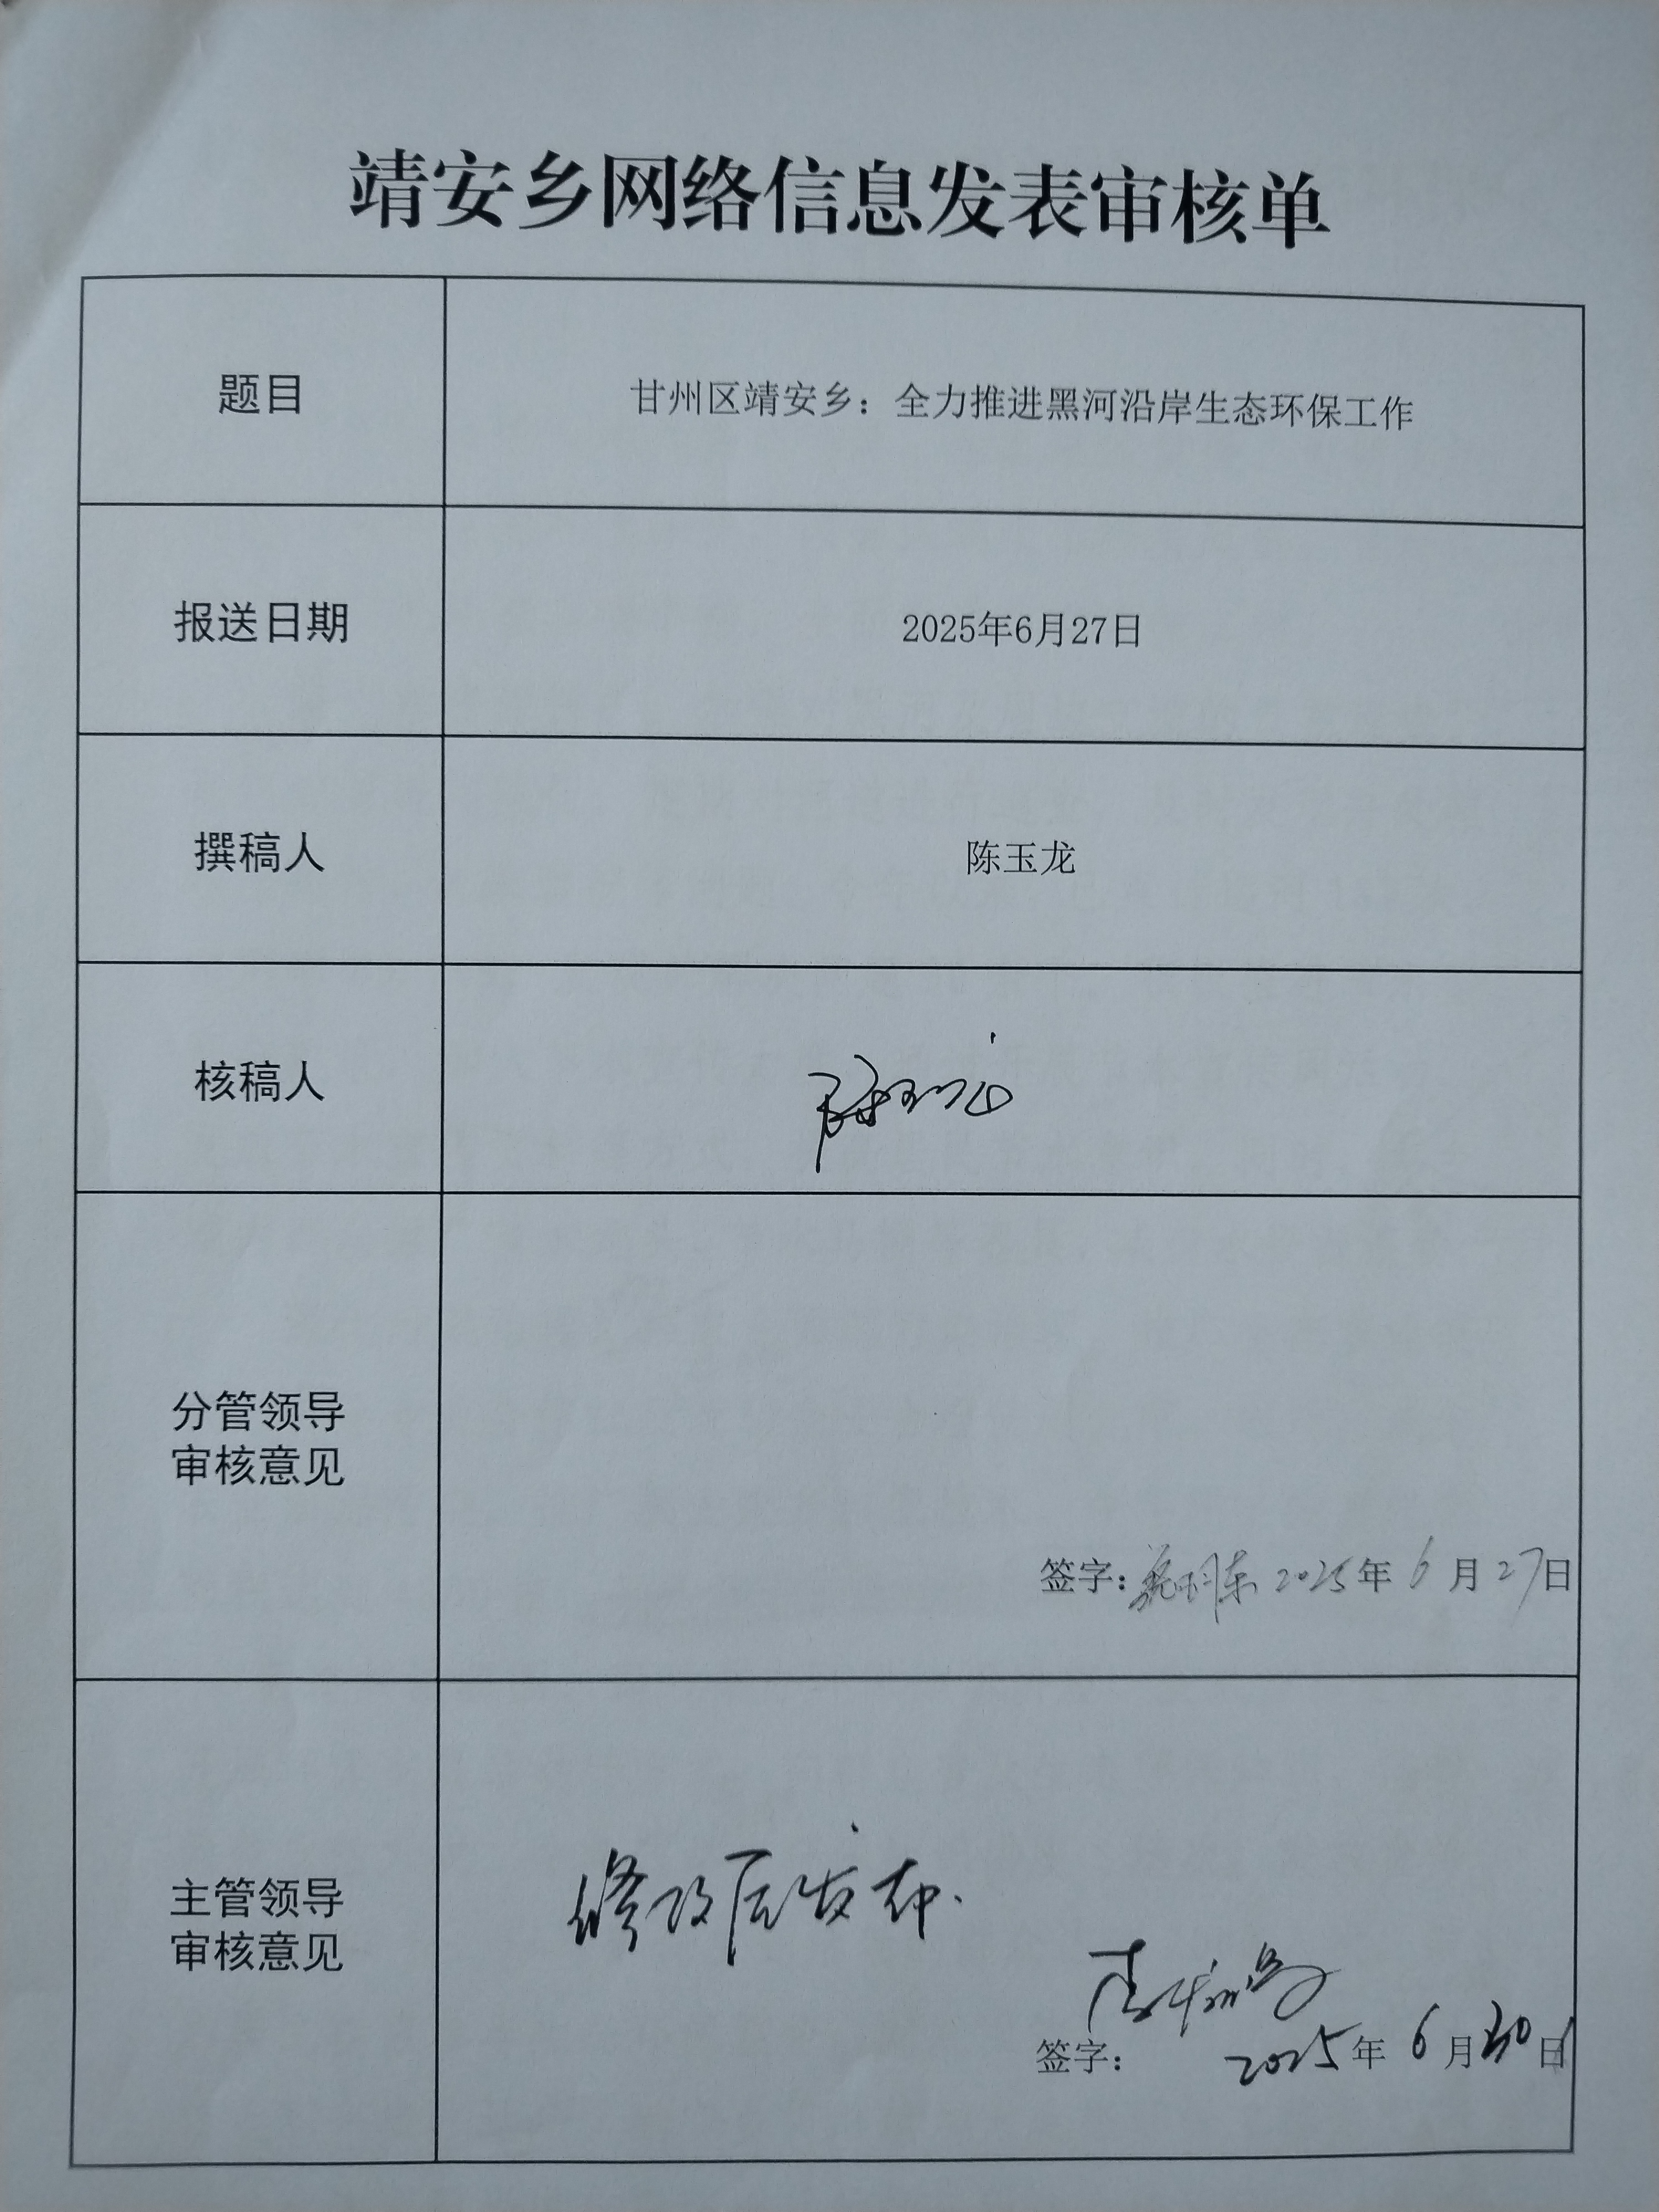 靖安乡网络信息发表审核单
题目
甘州区靖安乡：全力推进黑河沿岸生态环保工作
报送日期
2025年6月27日
撰稿人
陈玉龙
核稿人
分管领导
审核意见
签字： 2025年6月27日
主管领导
审核意见
修改后发布.
签字： 2025年6月30日